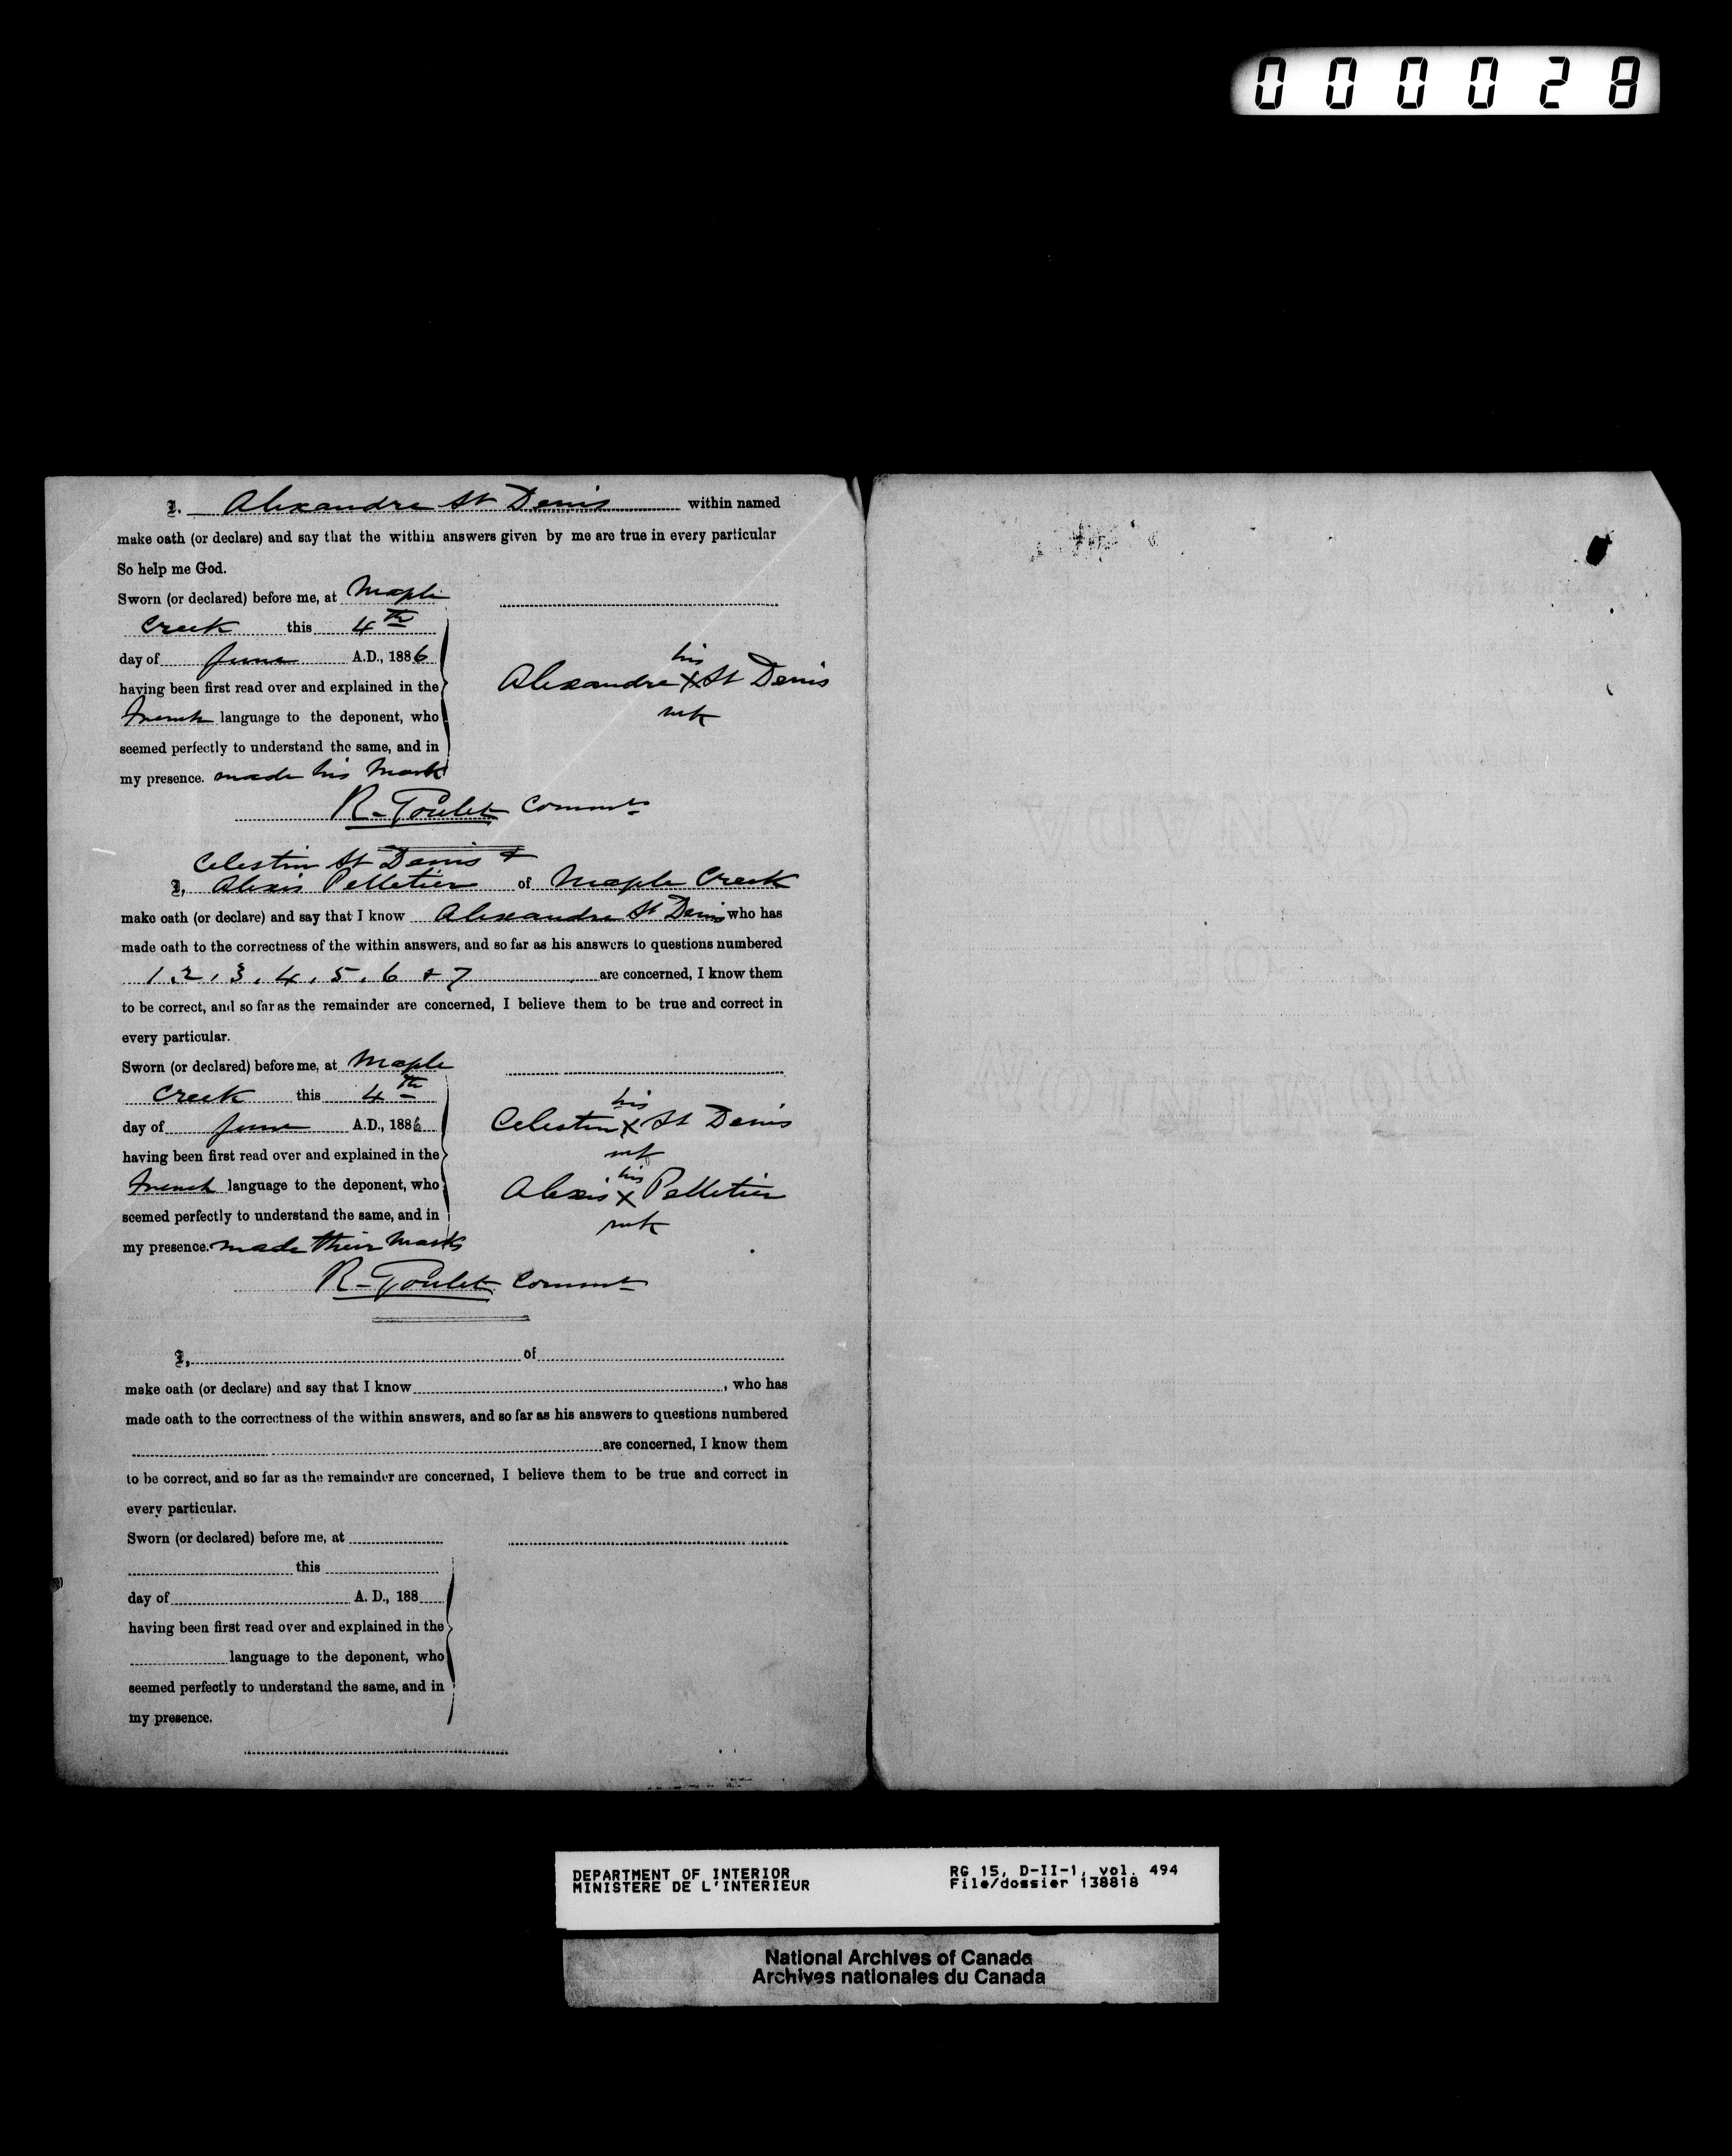 000028
I, Alexandre St Denis within named
make oath (or declare) and say that the within answers given by me are true in every particular
So help me God.
Sworn (or declared) before me, at Maple
Creek this 4th
day of June A.D., 1886
having been first read over and explained in the
French language to the deponent, who
seemed perfectly to understand the same, and in
my presence. made his mark
his
Alexandre X St Denis
mk
R. Goulet Commr
Celestin St Denis &
I, Alexis Pelletier of Maple Creek
make oath (or declare) and say that I know Alexandre St Denis who has
made oath to the correctness of the within answers, and so far as his answers to questions numbered
1, 2, 3, 4, 5, 6 & 7 are concerned, I know them
to be correct, and so far as the remainder are concerned, I believe them to be true and correct in
every particular.
Sworn (or declared) before me, at Maple
Creek this 4th
day of June A.D., 1886
having been first read over and explained in the
French language to the deponent, who
seemed perfectly to understand the same, and in
my presence. made their marks
his
Celestin X St Denis
mk
his
Alexis X Pelletier
mk
R. Goulet Commr
I, of
make oath (or declare) and say that I know , who has
made oath to the correctness of the within answers, and so far as his answers to questions numbered
are concerned, I know them
to be correct, and so far as the remainder are concerned, I believe them to be true and correct in
every particular.
Sworn (or declared) before me, at
this
day of A. D., 188
having been first read over and explained in the
language to the deponent, who
seemed perfectly to understand the same, and in
my presence.
DEPARTMENT OF INTERIOR
MINISTERE DE L'INTERIEUR
RG 15, D-II-1, vol. 494
File/dossier 138818
National Archives of Canada
Archives nationales du Canada